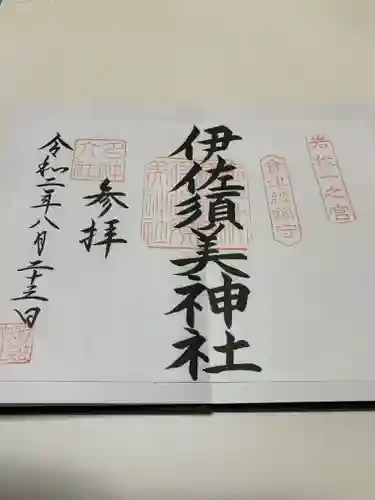 岩代一之宮
会津総鎮守
伊佐須美神社
参拝
令和二年八月二十三日